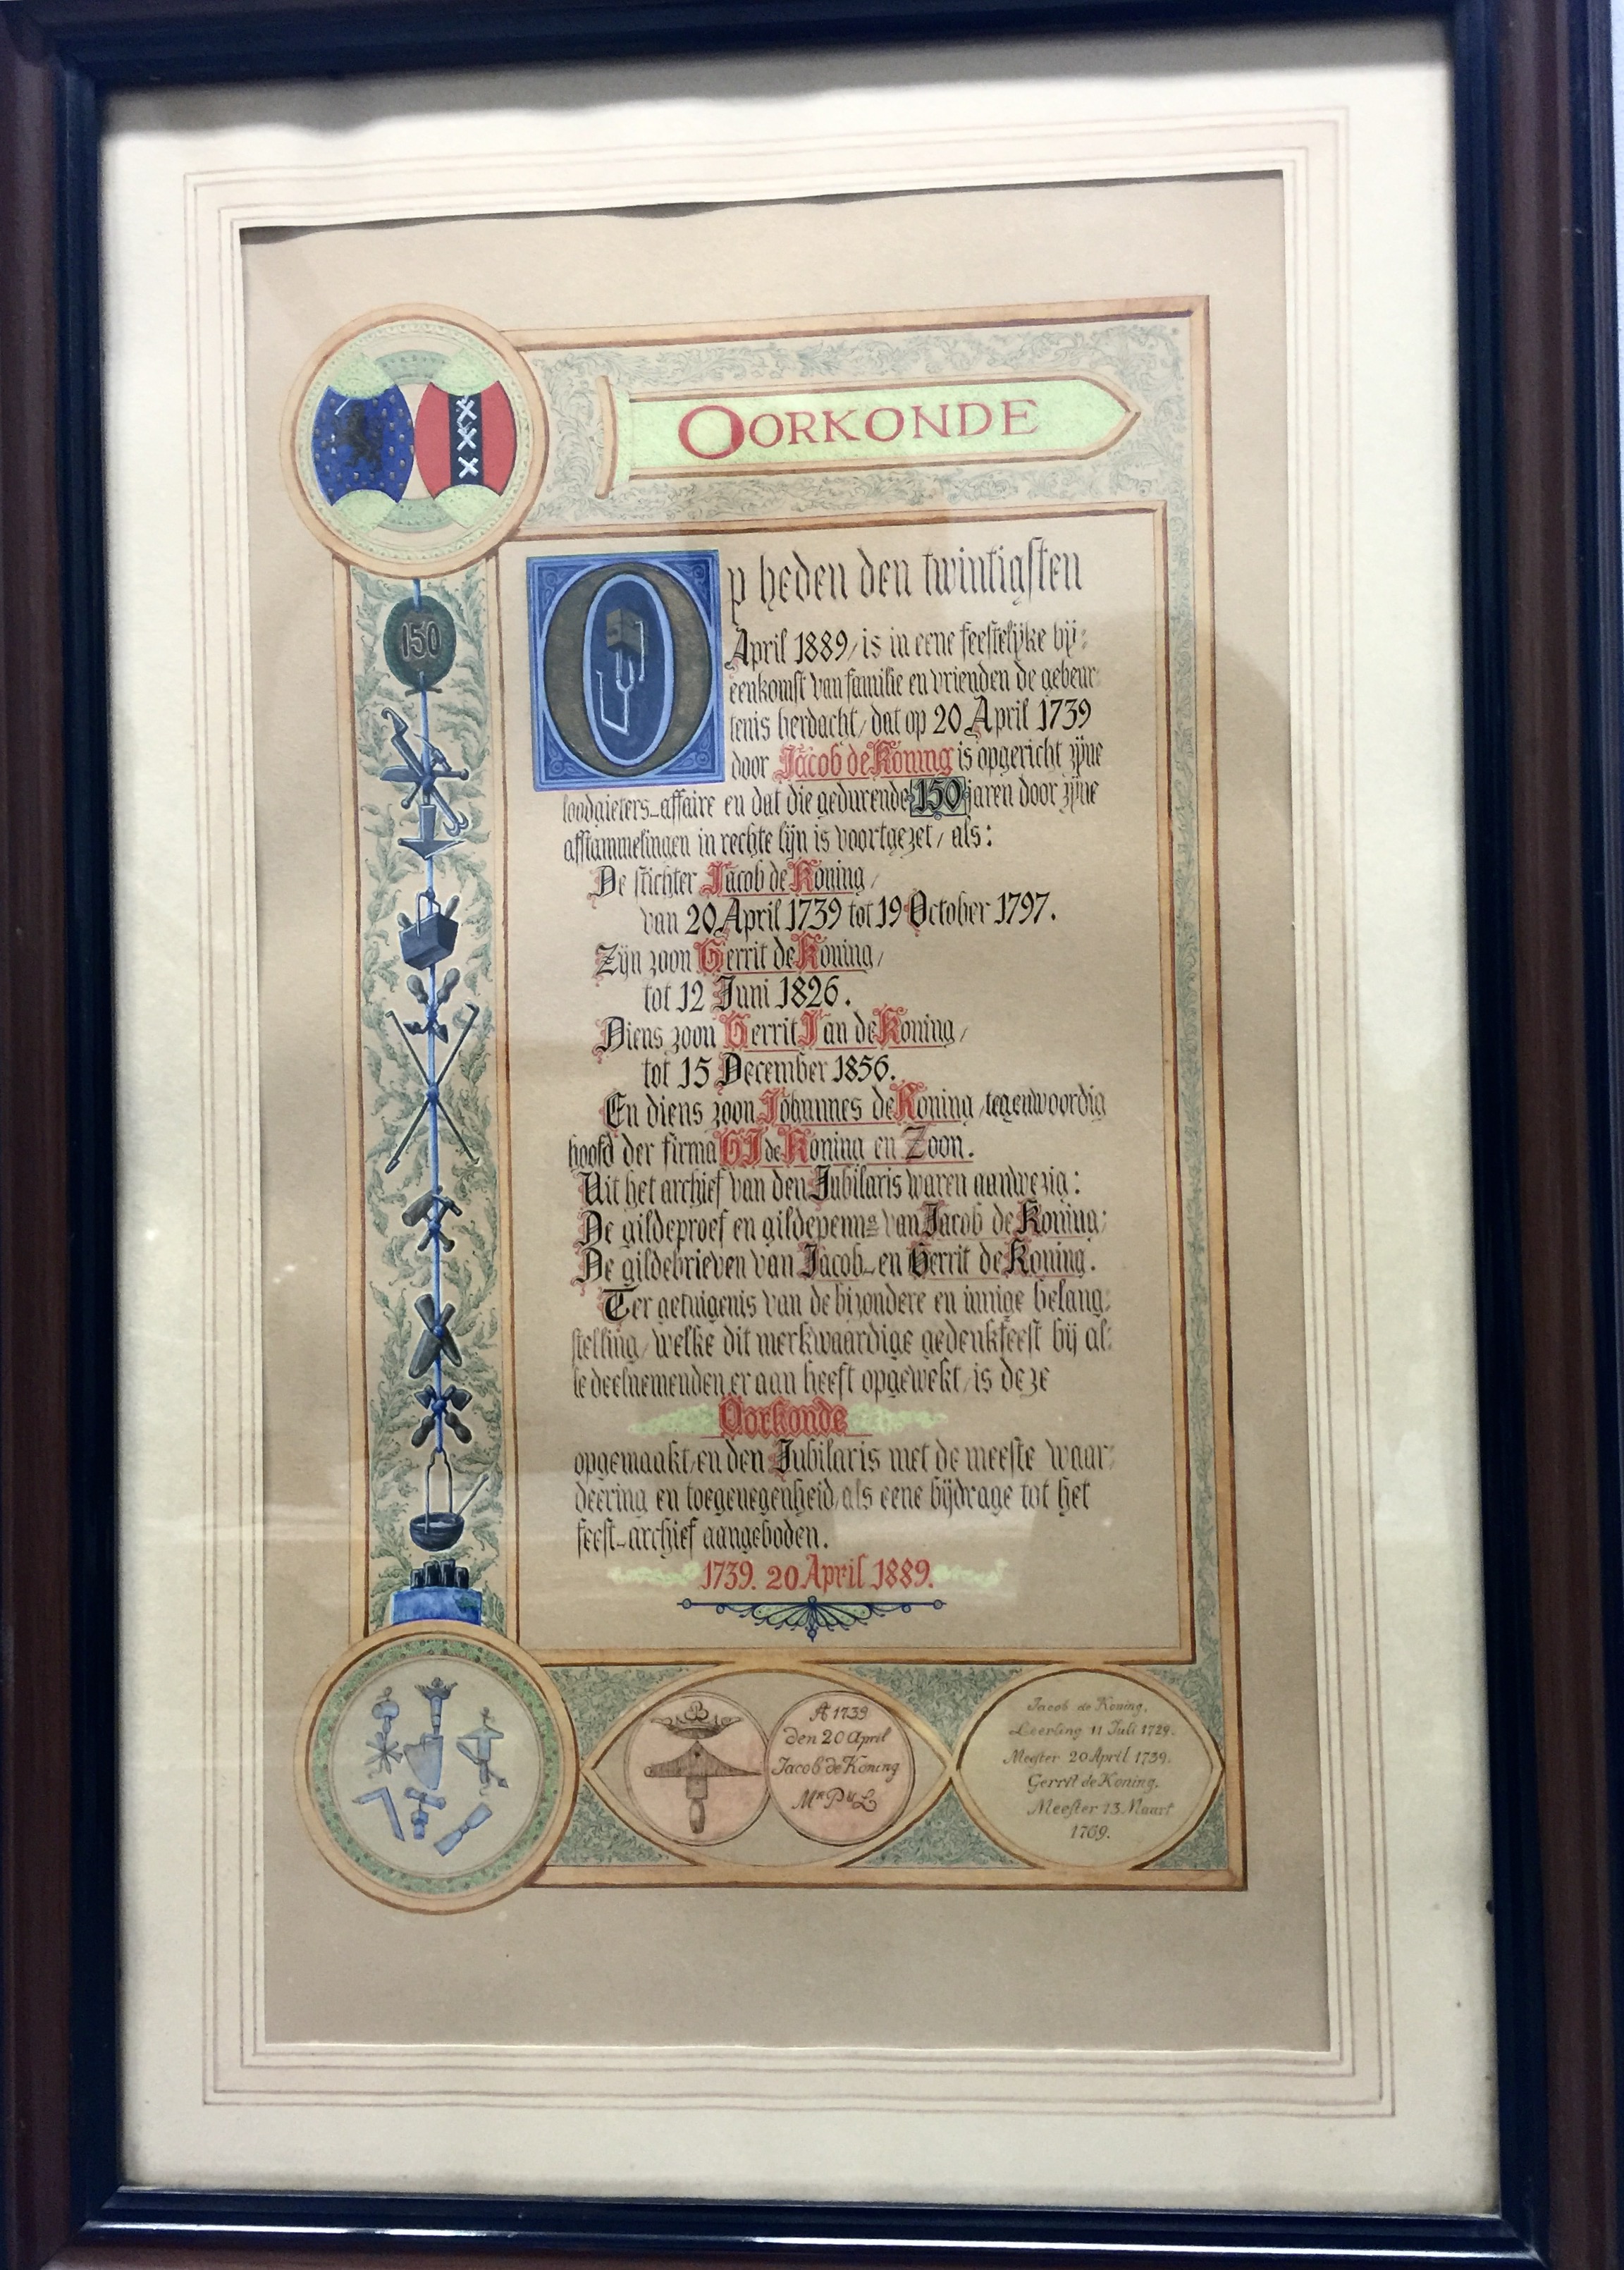 OORKONDE
150
Op heden den twintigsten
April 1889, is in eene feestelijke bij:
eenkomst van familie en vrienden de gebeur:
tenis herdacht, dat op 20 April 1739
door Jacob de Koning is opgericht zijne
loodgieters-affaire en dat die gedurende 150 jaren door zijne
afstammelingen in rechte lijn is voortgezet, als:
De stichter Jacob de Koning,
van 20 April 1739 tot 19 October 1797.
Zijn zoon Gerrit de Koning,
tot 12 Juni 1826.
Diens zoon Gerrit Jan de Koning,
tot 15 December 1856.
En diens zoon Johannes de Koning, tegenwoordig
hoofd der firma GJ de Koning en Zoon.
Uit het archief van den Jubilaris waren aanwezig:
De gildeproef en gildepenng van Jacob de Koning;
De gildebrieven van Jacob- en Gerrit de Koning.
Ter getuigenis van de bizondere en innige belang:
stelling, welke dit merkwaardige gedenkfeest bij al:
le deelnemenden er aan heeft opgewekt, is deze
Oorkonde
opgemaakt, en den Jubilaris met de meeste waar:
deering en toegenegenheid, als eene bijdrage tot het
feest-archief aangeboden.
1739. 20 April 1889.
Ao 1739
den 20 April
Jacob de Koning
Mr P L
Jacob de Koning.
Leerling 11 Juli 1729.
Meester 20 April 1739.
Gerrit de Koning.
Meester 13 Maart
1769.